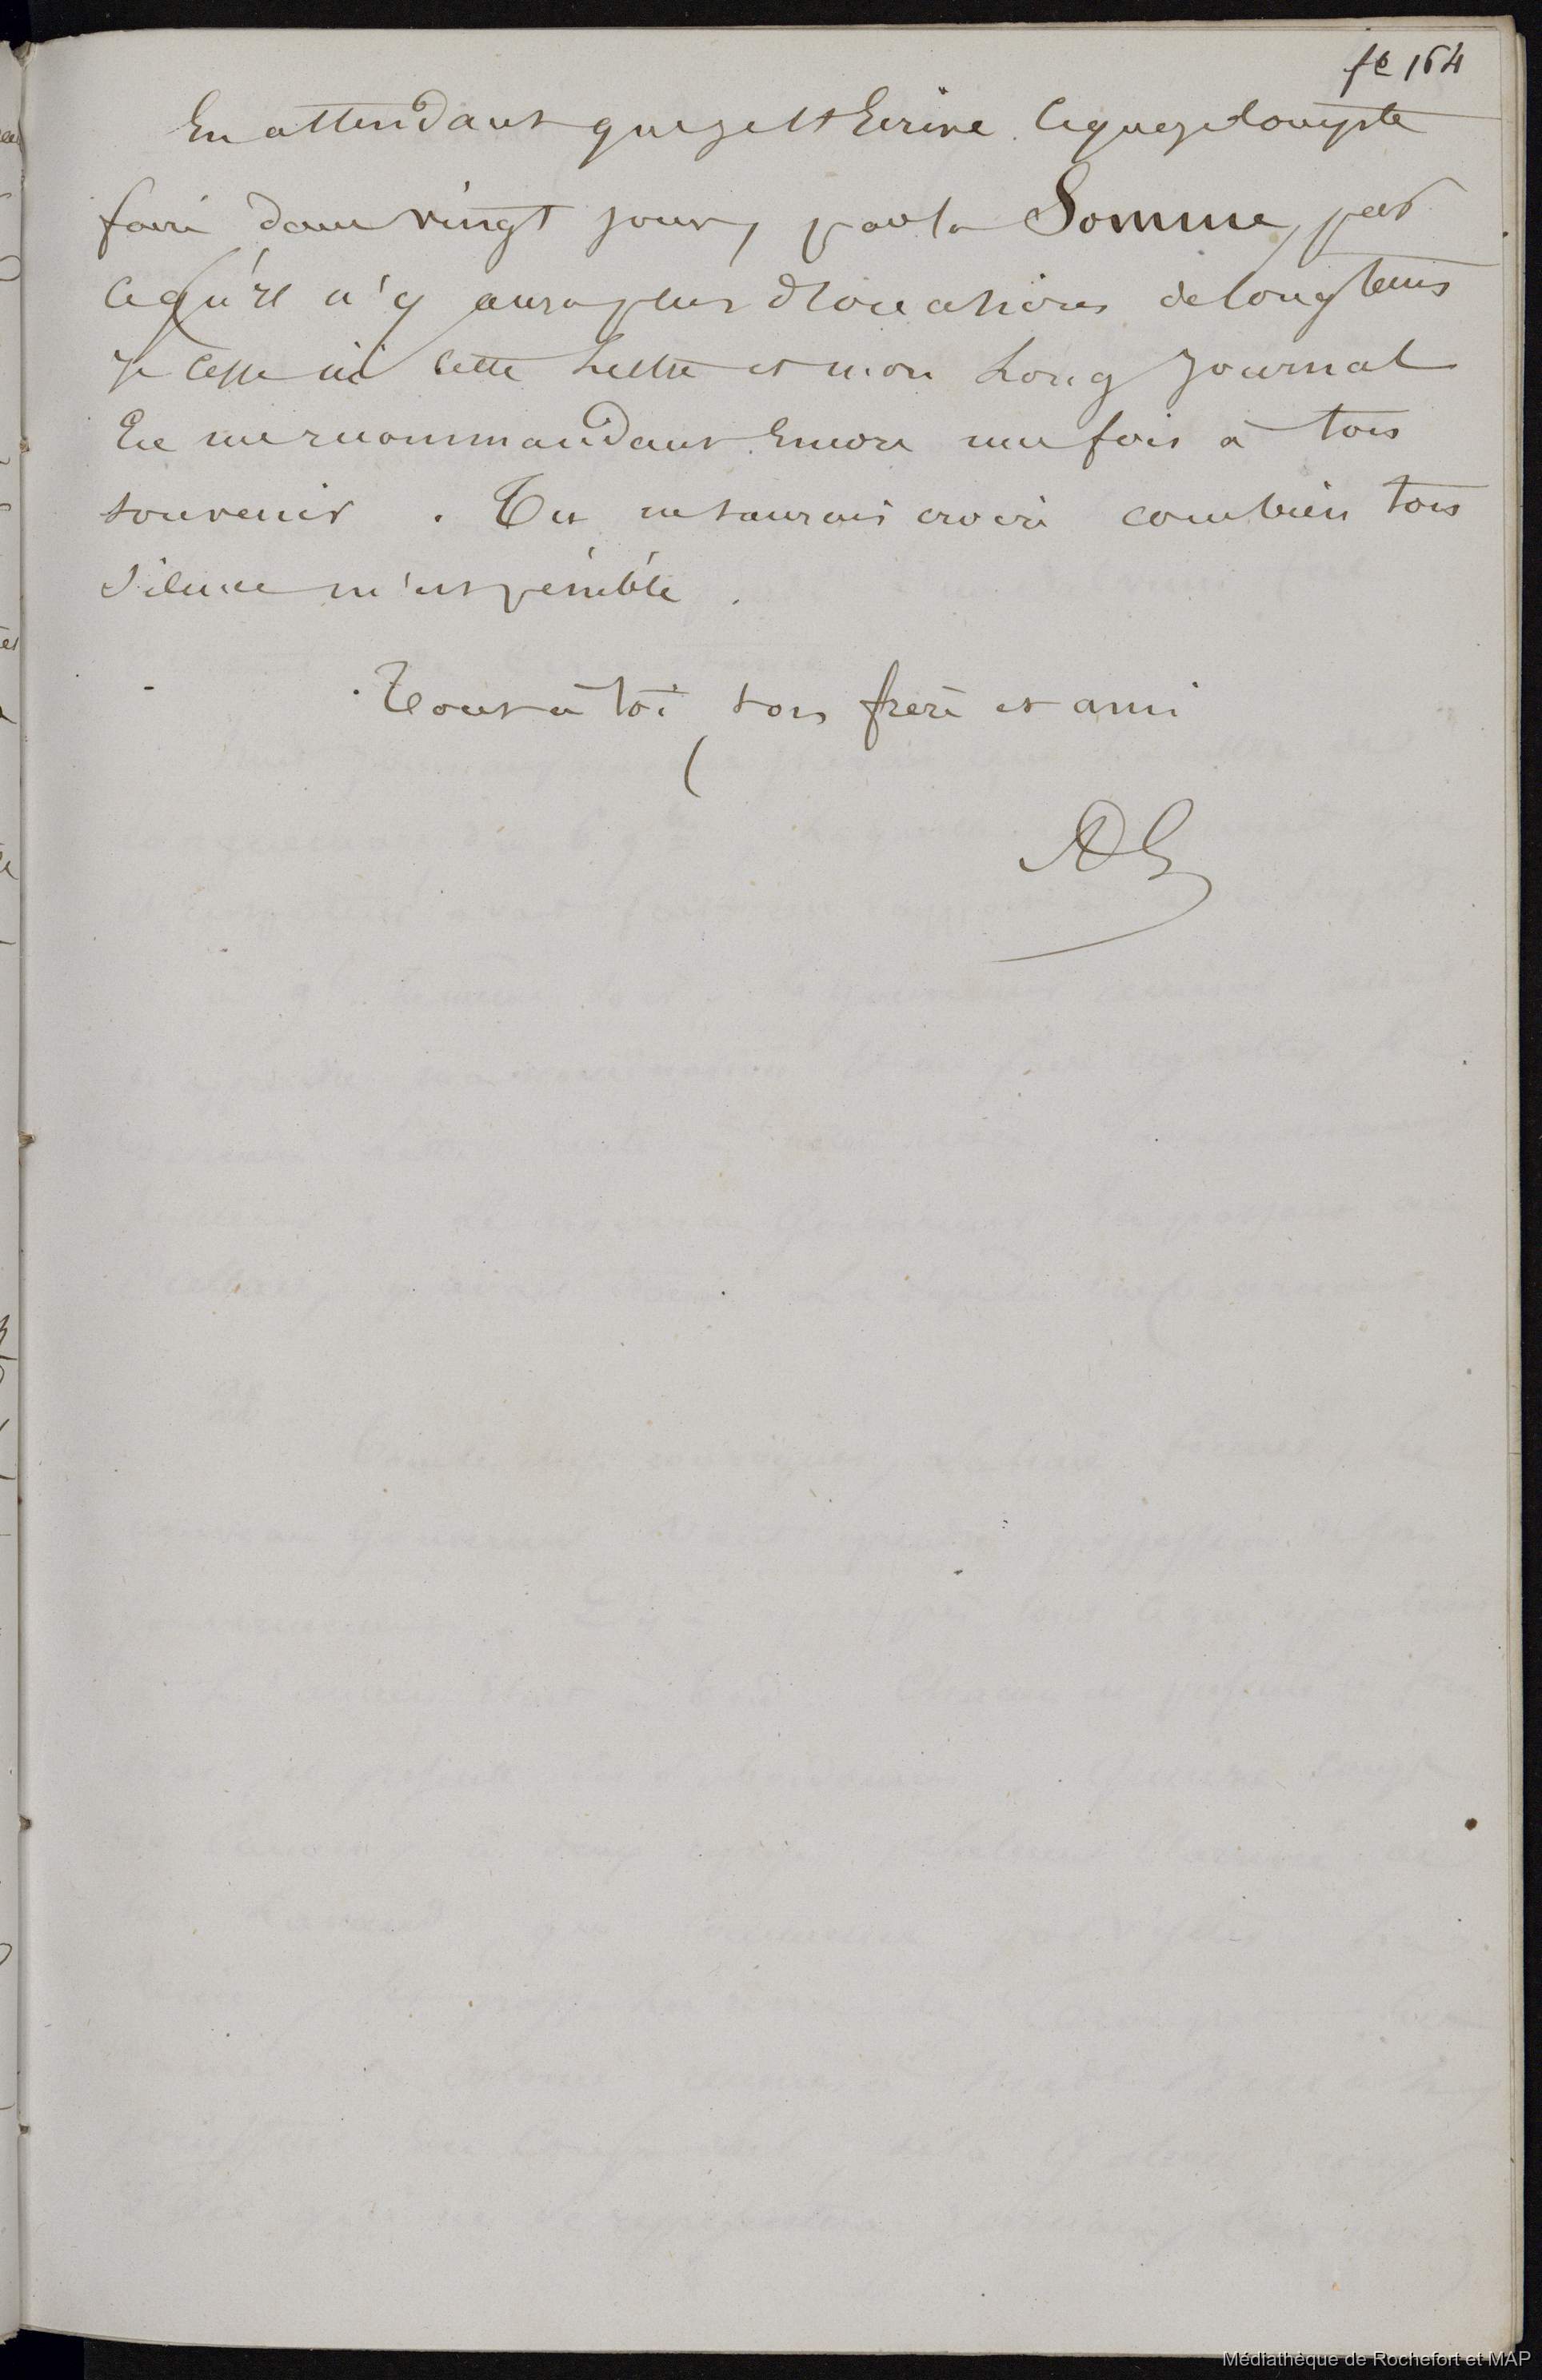 fo 164
En attendant que je t'Ecrive ce que je compte
faire dans vingt jours, par la Somme, par
ce qu'il n'y aura plus d'occasions de longtems
je cesse ici cette Lettre et mon Long Journal
En me recommandant Encore une fois à ton
souvenir. Tu ne saurais croire combien ton
silence m'est pénible.
Tout à toi ton frère et ami
Médiathèque de Rochefort et MAP